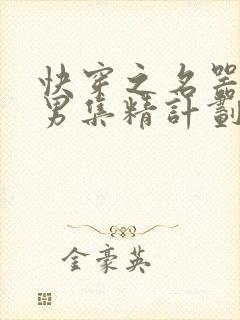 快穿之名器
男集精計劃
金豪英